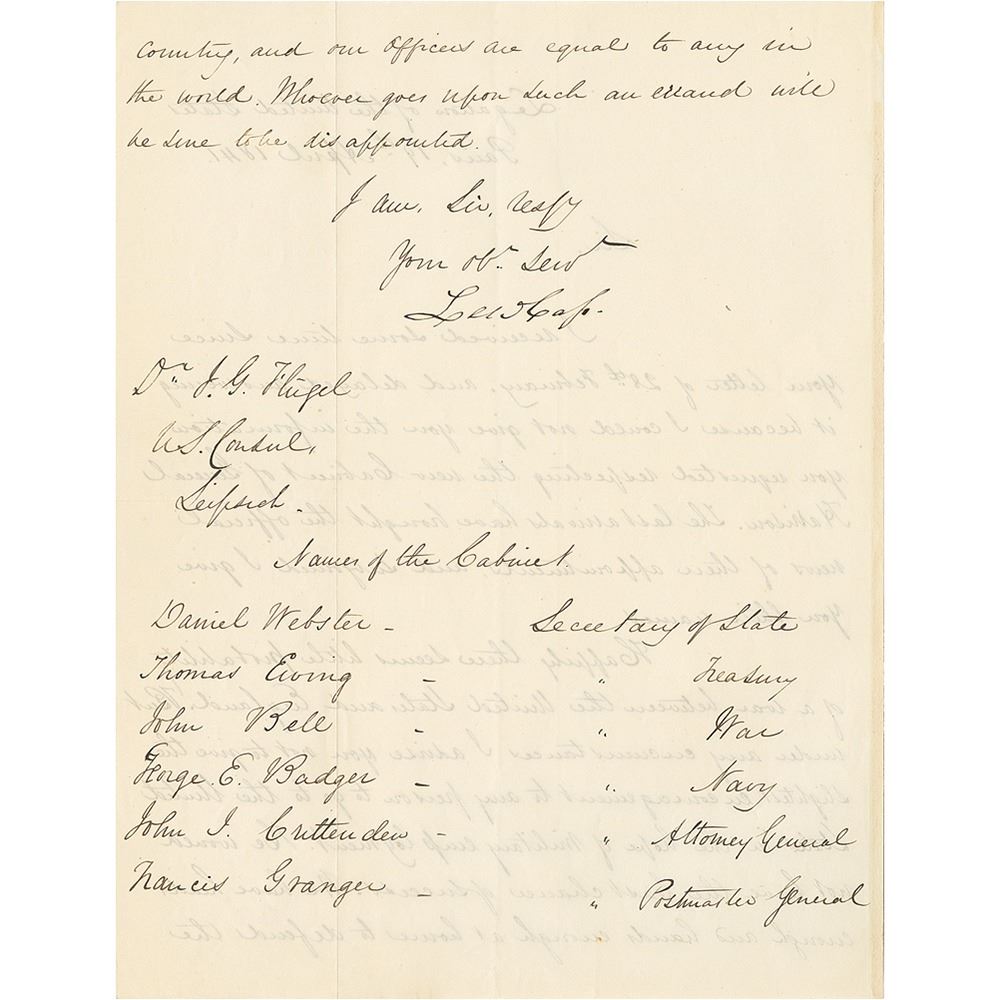 Country, and our Officers are equal to any in
the world. Whoever goes upon such an errand will
be sure to be disappointed.
I am, Sir, respy
Your obt. Servt
Lew Cass.
Dr. J. G. Flügel
U.S. Consul,
Leipsich.
Names of the Cabinet.
Daniel Webster - Secretary of State
Thomas Ewing - " Treasury
John Bell - " War
George. E. Badger - " Navy
John J. Crittenden - " Attorney General
Francis Granger - " Postmaster General